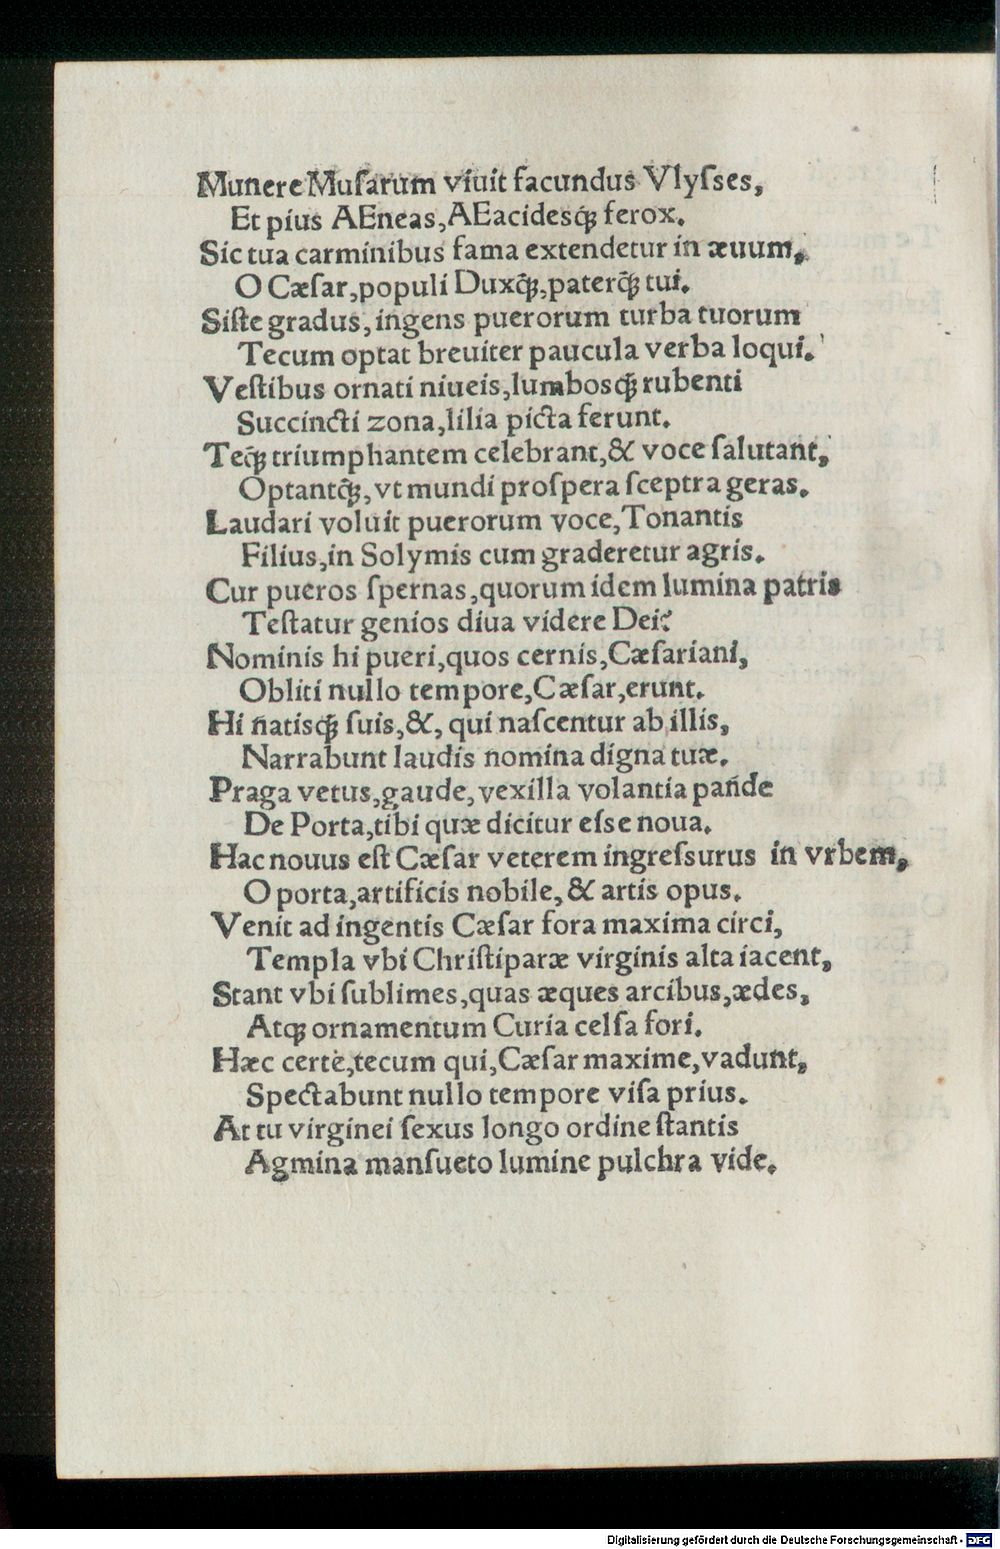 Munere Muſarum viuit facundus Vlyſses,
Et pius AEneas, AEacidesq́ꝫ ferox.
Sic tua carminibus fama extendetur in æuum,
O Cæſar, populi Duxq́ꝫ, paterq́ꝫ tui.
Siſte gradus, ingens puerorum turba tuorum
Tecum optat breuiter paucula verba loqui.
Veſtibus ornati niueis, lumbosq́ꝫ rubenti
Succincti zona, lilia picta ferunt.
Teq́ꝫ triumphantem celebrant, & voce ſalutant,
Optantq́ꝫ, vt mundi proſpera ſceptra geras.
Laudari voluit puerorum voce, Tonantis
Filius, in Solymis cum graderetur agris.
Cur pueros ſpernas, quorum idem lumina patris
Teſtatur genios diua videre Dei?
Nominis hi pueri, quos cernis, Cæſariani,
Obliti nullo tempore, Cæſar, erunt.
Hi ñatisq́ꝫ ſuis, &, qui naſcentur ab illis,
Narrabunt laudis nomina digna tuæ.
Praga vetus, gaude, vexilla volantia pañde
De Porta, tibi quæ dicitur eſse noua.
Hac nouus eſt Cæſar veterem ingreſsurus in vrbem,
O porta, artificis nobile, & artis opus.
Venit ad ingentis Cæſar fora maxima circi,
Templa vbi Chriſtiparæ virginis alta iacent,
Stant vbi ſublimes, quas æques arcibus, ædes,
Atqꝫ ornamentum Curia celſa fori.
Hæc certè, tecum qui, Cæſar maxime, vadunt,
Spectabunt nullo tempore viſa prius.
At tu virginei ſexus longo ordine ſtantis
Agmina manſueto lumine pulchra vide.
Digitalisierung gefördert durch die Deutsche Forschungsgemeinschaft - DFG